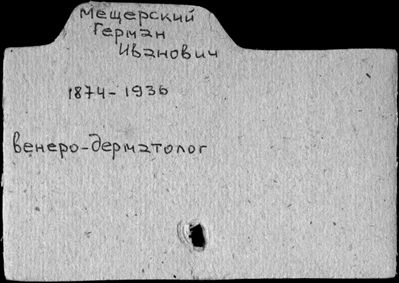 Мещерский
Герман
Иванович
1874-1936
венеро-дерматолог